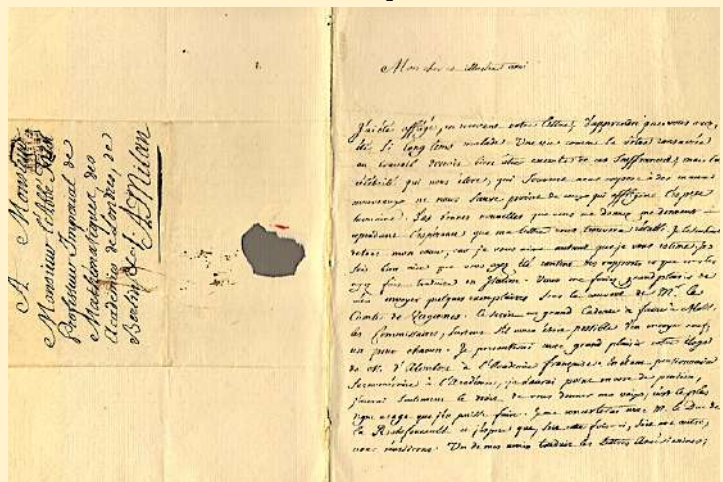 A Monsieur
Monsieur l'Abbé Frisi
Professeur Imperial de
Mathématiques, des
Académies de Londres, de
Berlin &c. A Milan
Mon cher et illustre ami
J'ai été affligé, en recevant votre lettre, d'apprendre que vous avez
été si long tems malade. Une vie comme la vôtre consacrée
au travail devroit être exempte de ces souffrances, mais la
célébrité qui nous élève, qui souvent nous expose à des maux
nouveaux ne nous sauve point de ceux qui affligent l'espèce
humaine. Les bonnes nouvelles que vous me donnez me donnent
cependant l'espérance que ma lettre vous trouvera rétabli. Je le souhaite
de tout mon cœur, car je vous aime autant que je vous estime. Je
suis bien aise que vous ayez été content des rapports et que vous les
faire traduire en Italien. Vous me feriez grand plaisir de
m'en envoyer quelques exemplaires sous le couvert de Mr. le
Comte de Vergennes. Ce seroit un grand cadeau à faire à Mrs.
les Commissaires, surtout s'il vous étoit possible d'en envoyer neuf,
un pour chacun. Je présenterai avec grand plaisir votre éloge
de M. d'Alembert à l'Académie française. Étant pensionnaire
surnuméraire à l'Académie, je n'aurai point encore de pension,
j'aurai seulement le droit de vous donner ma voix, c'est le plus
digne usage que j'en puisse faire. Je me concerterai avec M. le Duc de
la Rochefoucault et j'espère que, soit cette fois-ci, soit une autre,
nous réussirons. Un de mes amis traduit les lettres Américaines,